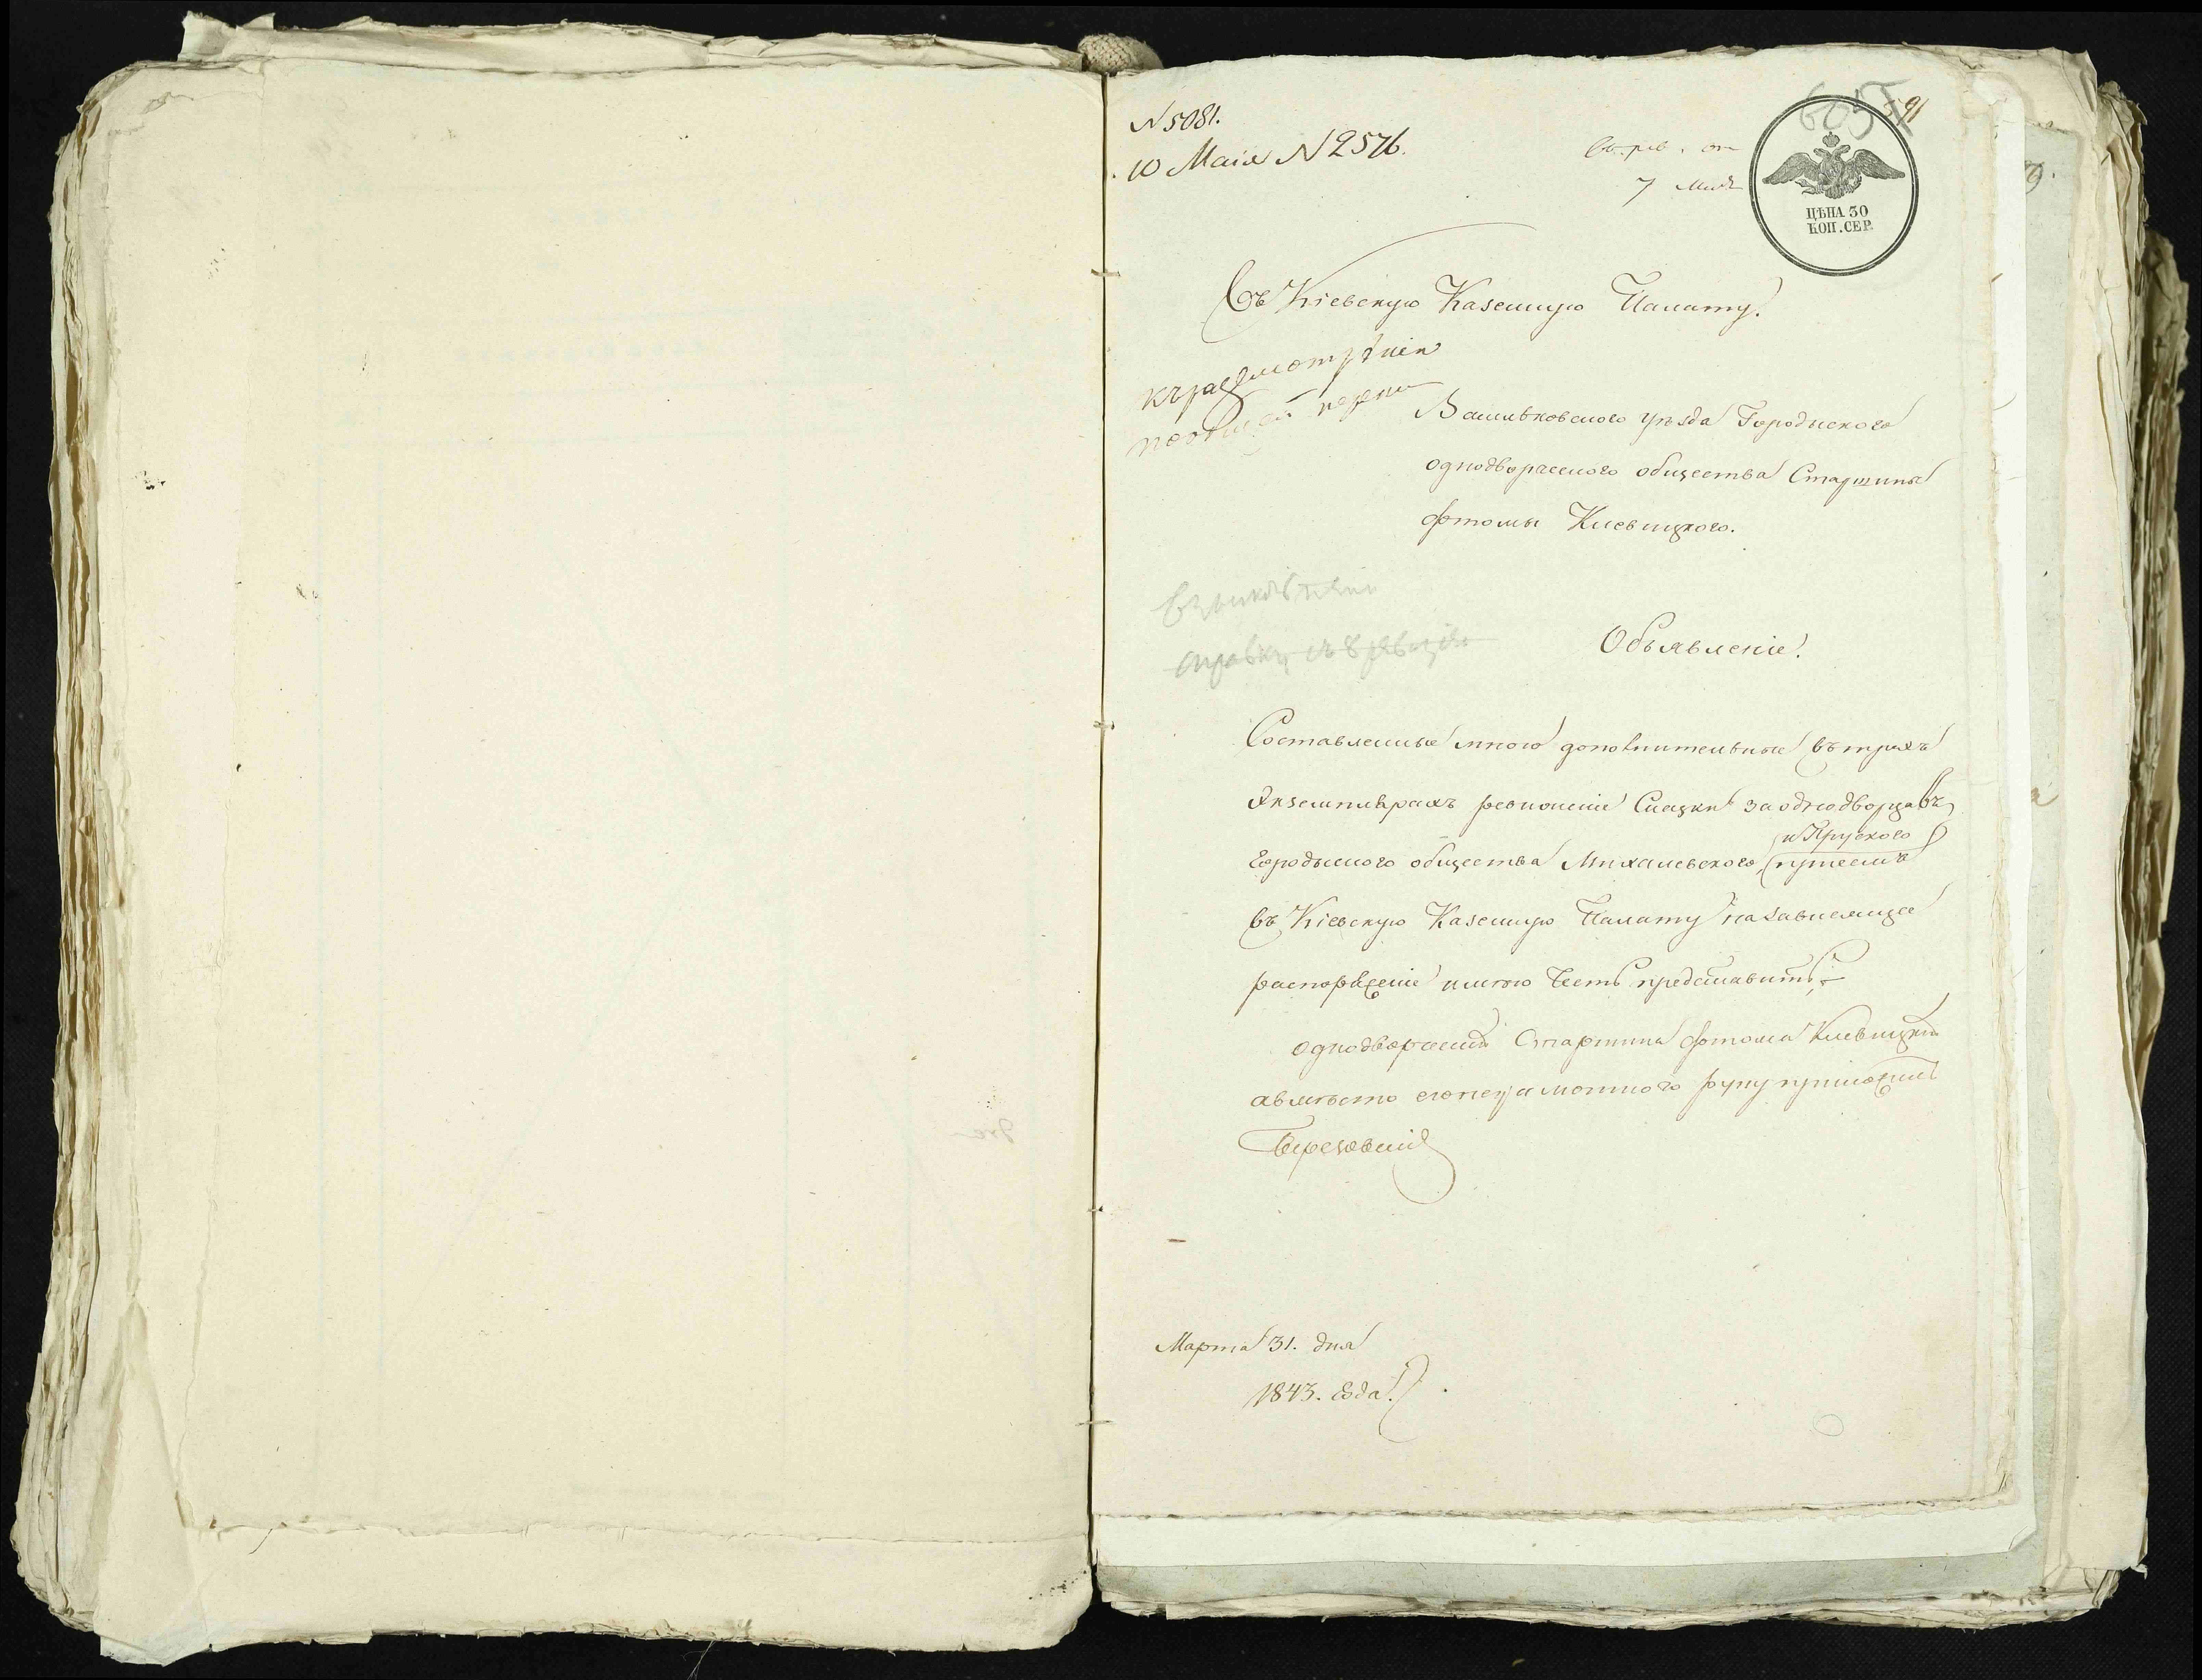 N 5081.
10 Маія N 2576.
591
605
7 Мая
ЦѢНА 30
КОП. СЕР.
Въ Кіевскую Казенную Палату.
къ разсмотрѣнію
Васильковскаго уѣзда Городыского
однодворческого общества Старшины
Фтомы Клевицкого.
справку съ 8 ревизіи
Объявленіе.
Составленные мною дополнительные въ трехъ
Экземплярахъ ревизские Сказки за однодворцавъ
и Пруского
Городыского общества Михалевского,
въ Кіевскую Казенную Палату на зависящее
распоряжение имею Честь представить,
однодворческий Старшина Фтома Клевицкий
а вместо его неграмотного руку приложилъ
Березовский
Марта 31. дня
1843. Года.